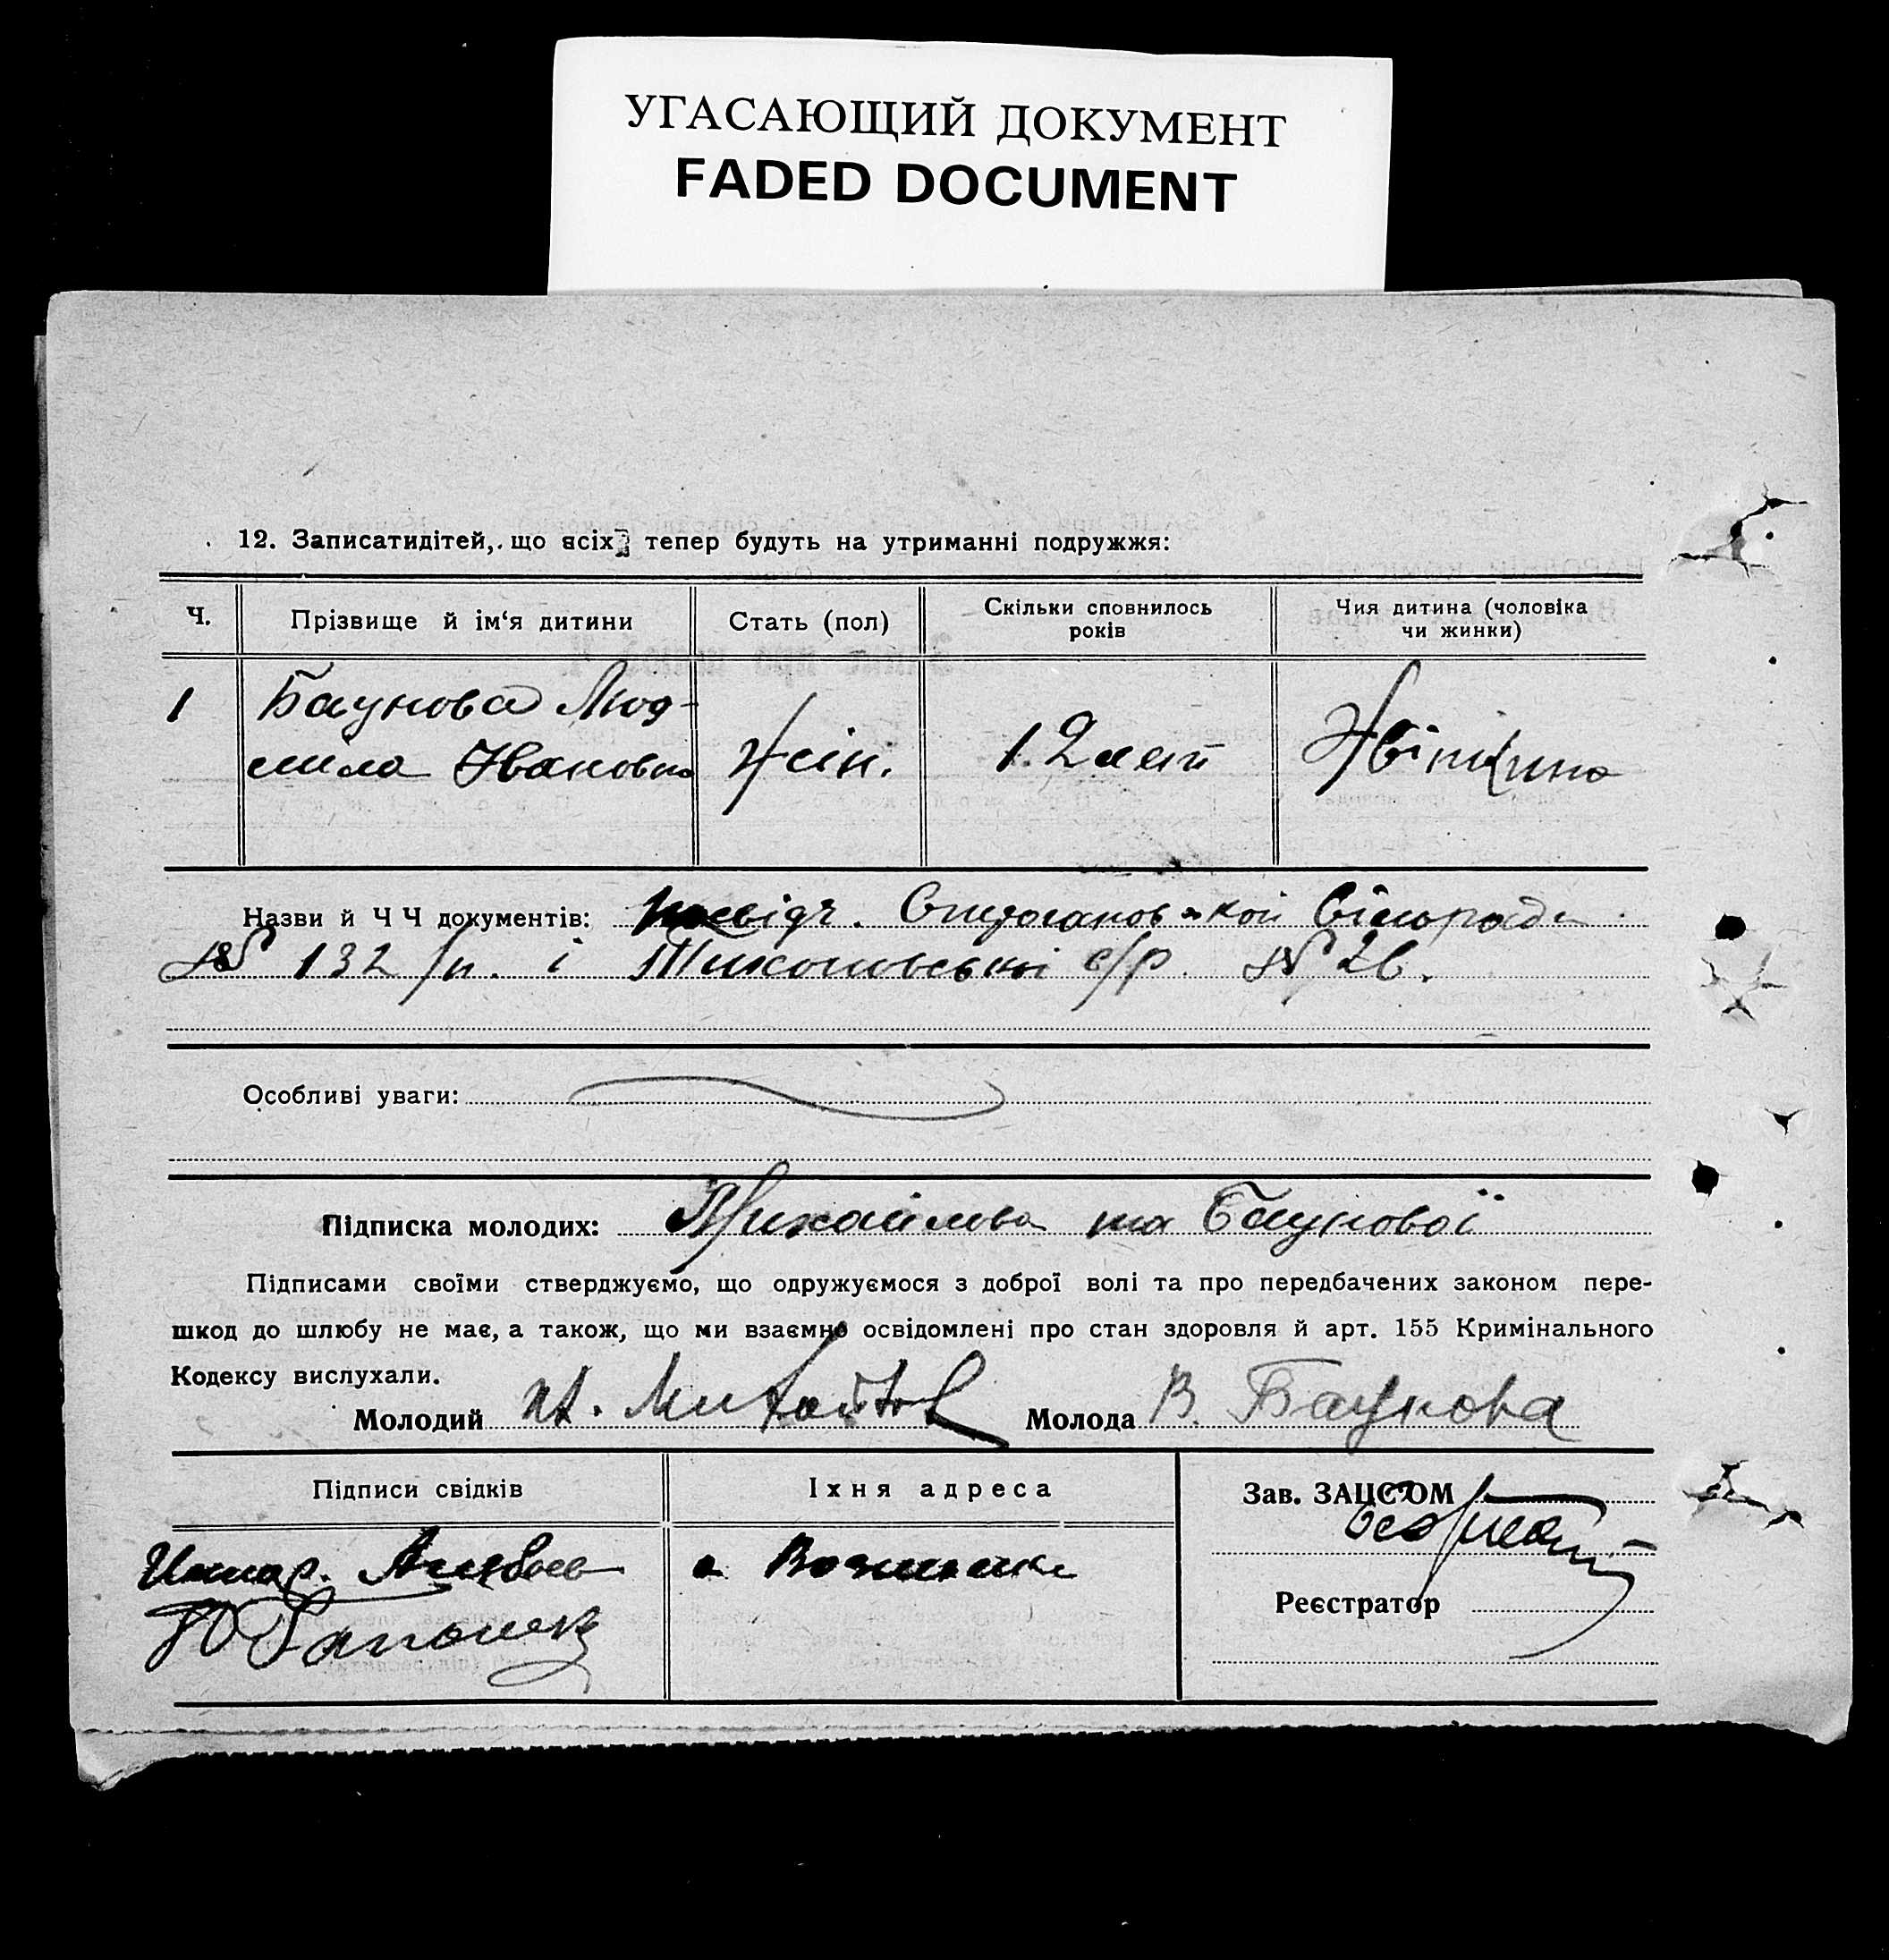 УГАСАЮЩИЙ ДОКУМЕНТ
FADED DOCUMENT
12. Записатидітей, що всіх тепер будуть на утриманні подружжя:
Ч. Прізвище й ім‘я дитини Стать (пол) Скільки сповнилось років Чия дитина (чоловіка чи жинки)
1 Баунова Люд-
мила Ивановна жін. 1.2 лет
Назви й Ч Ч документів: посвідч.
№ 132 /п. і с/р. №
Особливі уваги:
Підписка молодих: Михайлова та Баунової
Підписами своїми стверджуємо, що одружуємося з доброї волі та про передбачених законом пере-
шкод до шлюбу не має, а також, що ми взаємно освідомлені про стан здоровля й арт. 155 Кримінального
Кодексу вислухали.
Молодий Михайлов Молода В. Баунова
Підписи свідків Їхня адреса Зав. ЗАЦСОМ
Реєстратор